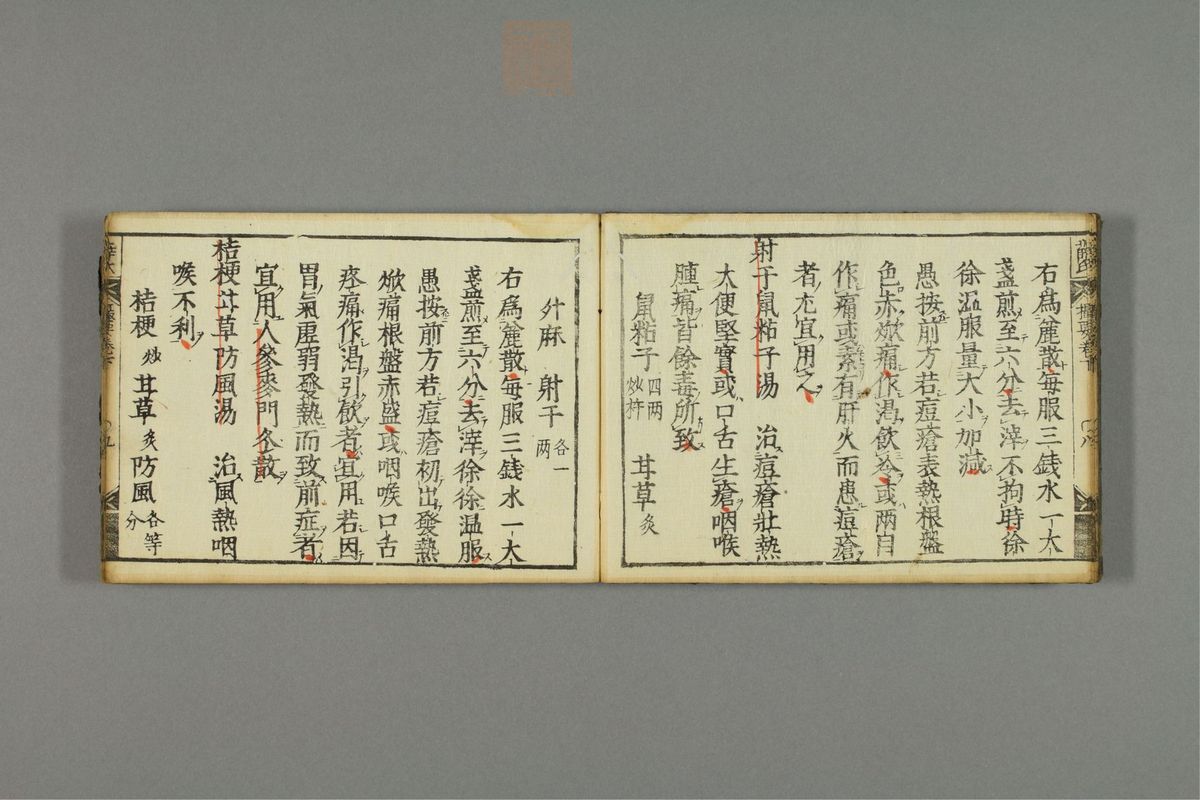 右為麄散每服三銭水一大
盞煎至六分去滓不拘時徐
徐温服量大小加減
愚按前方若痘瘡表熱根盤
色赤焮痛作渴飲冷或兩目
作痛或素有肝火而患痘瘡
者尤宜用之
射干鼠粘子湯 治痘瘡壯熱
大便堅實或口舌生瘡咽喉
腫痛皆餘毒所致
鼠粘子 四两 炒杵 甘草 炙
升麻 射干 各一两
右為麄散每服三銭水一大
盞煎至六分去滓徐徐温服
愚按前方若痘瘡初出發熱
焮痛根盤赤盛或咽喉口舌
疼痛作渴引飲者宜用若因
胃氣虚弱發熱而致前症者
宜用人參麥門冬散
桔梗甘草防風湯 治風熱咽
喉不利
桔梗 炒 甘草 炙 防風 各等分